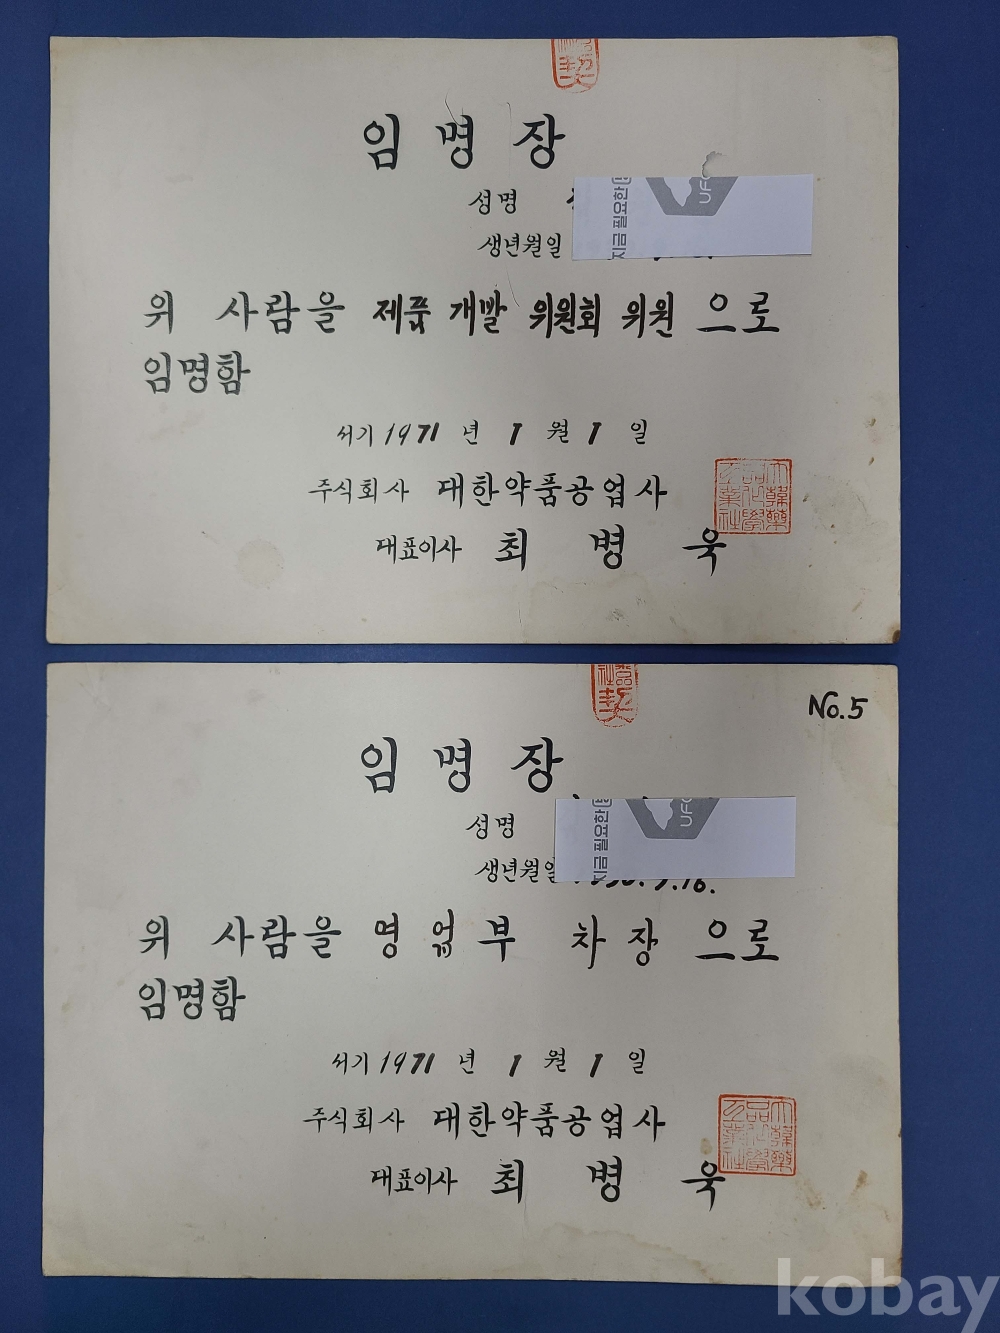 임명장
성명
지금 필요한
UFO
생년월일
위 사람을 제품 개발 위원회 위원 으로
임명함
서기 1971 년 1 월 1 일
주식회사 대한약품공업사
대표이사 최 병 욱
No.5
임명장
성명
지금 필요한
UFO
생년월일 9.16.
위 사람을 영업부 차장 으로
임명함
서기 1971 년 1 월 1 일
주식회사 대한약품공업사
대표이사 최 병 욱
kobay